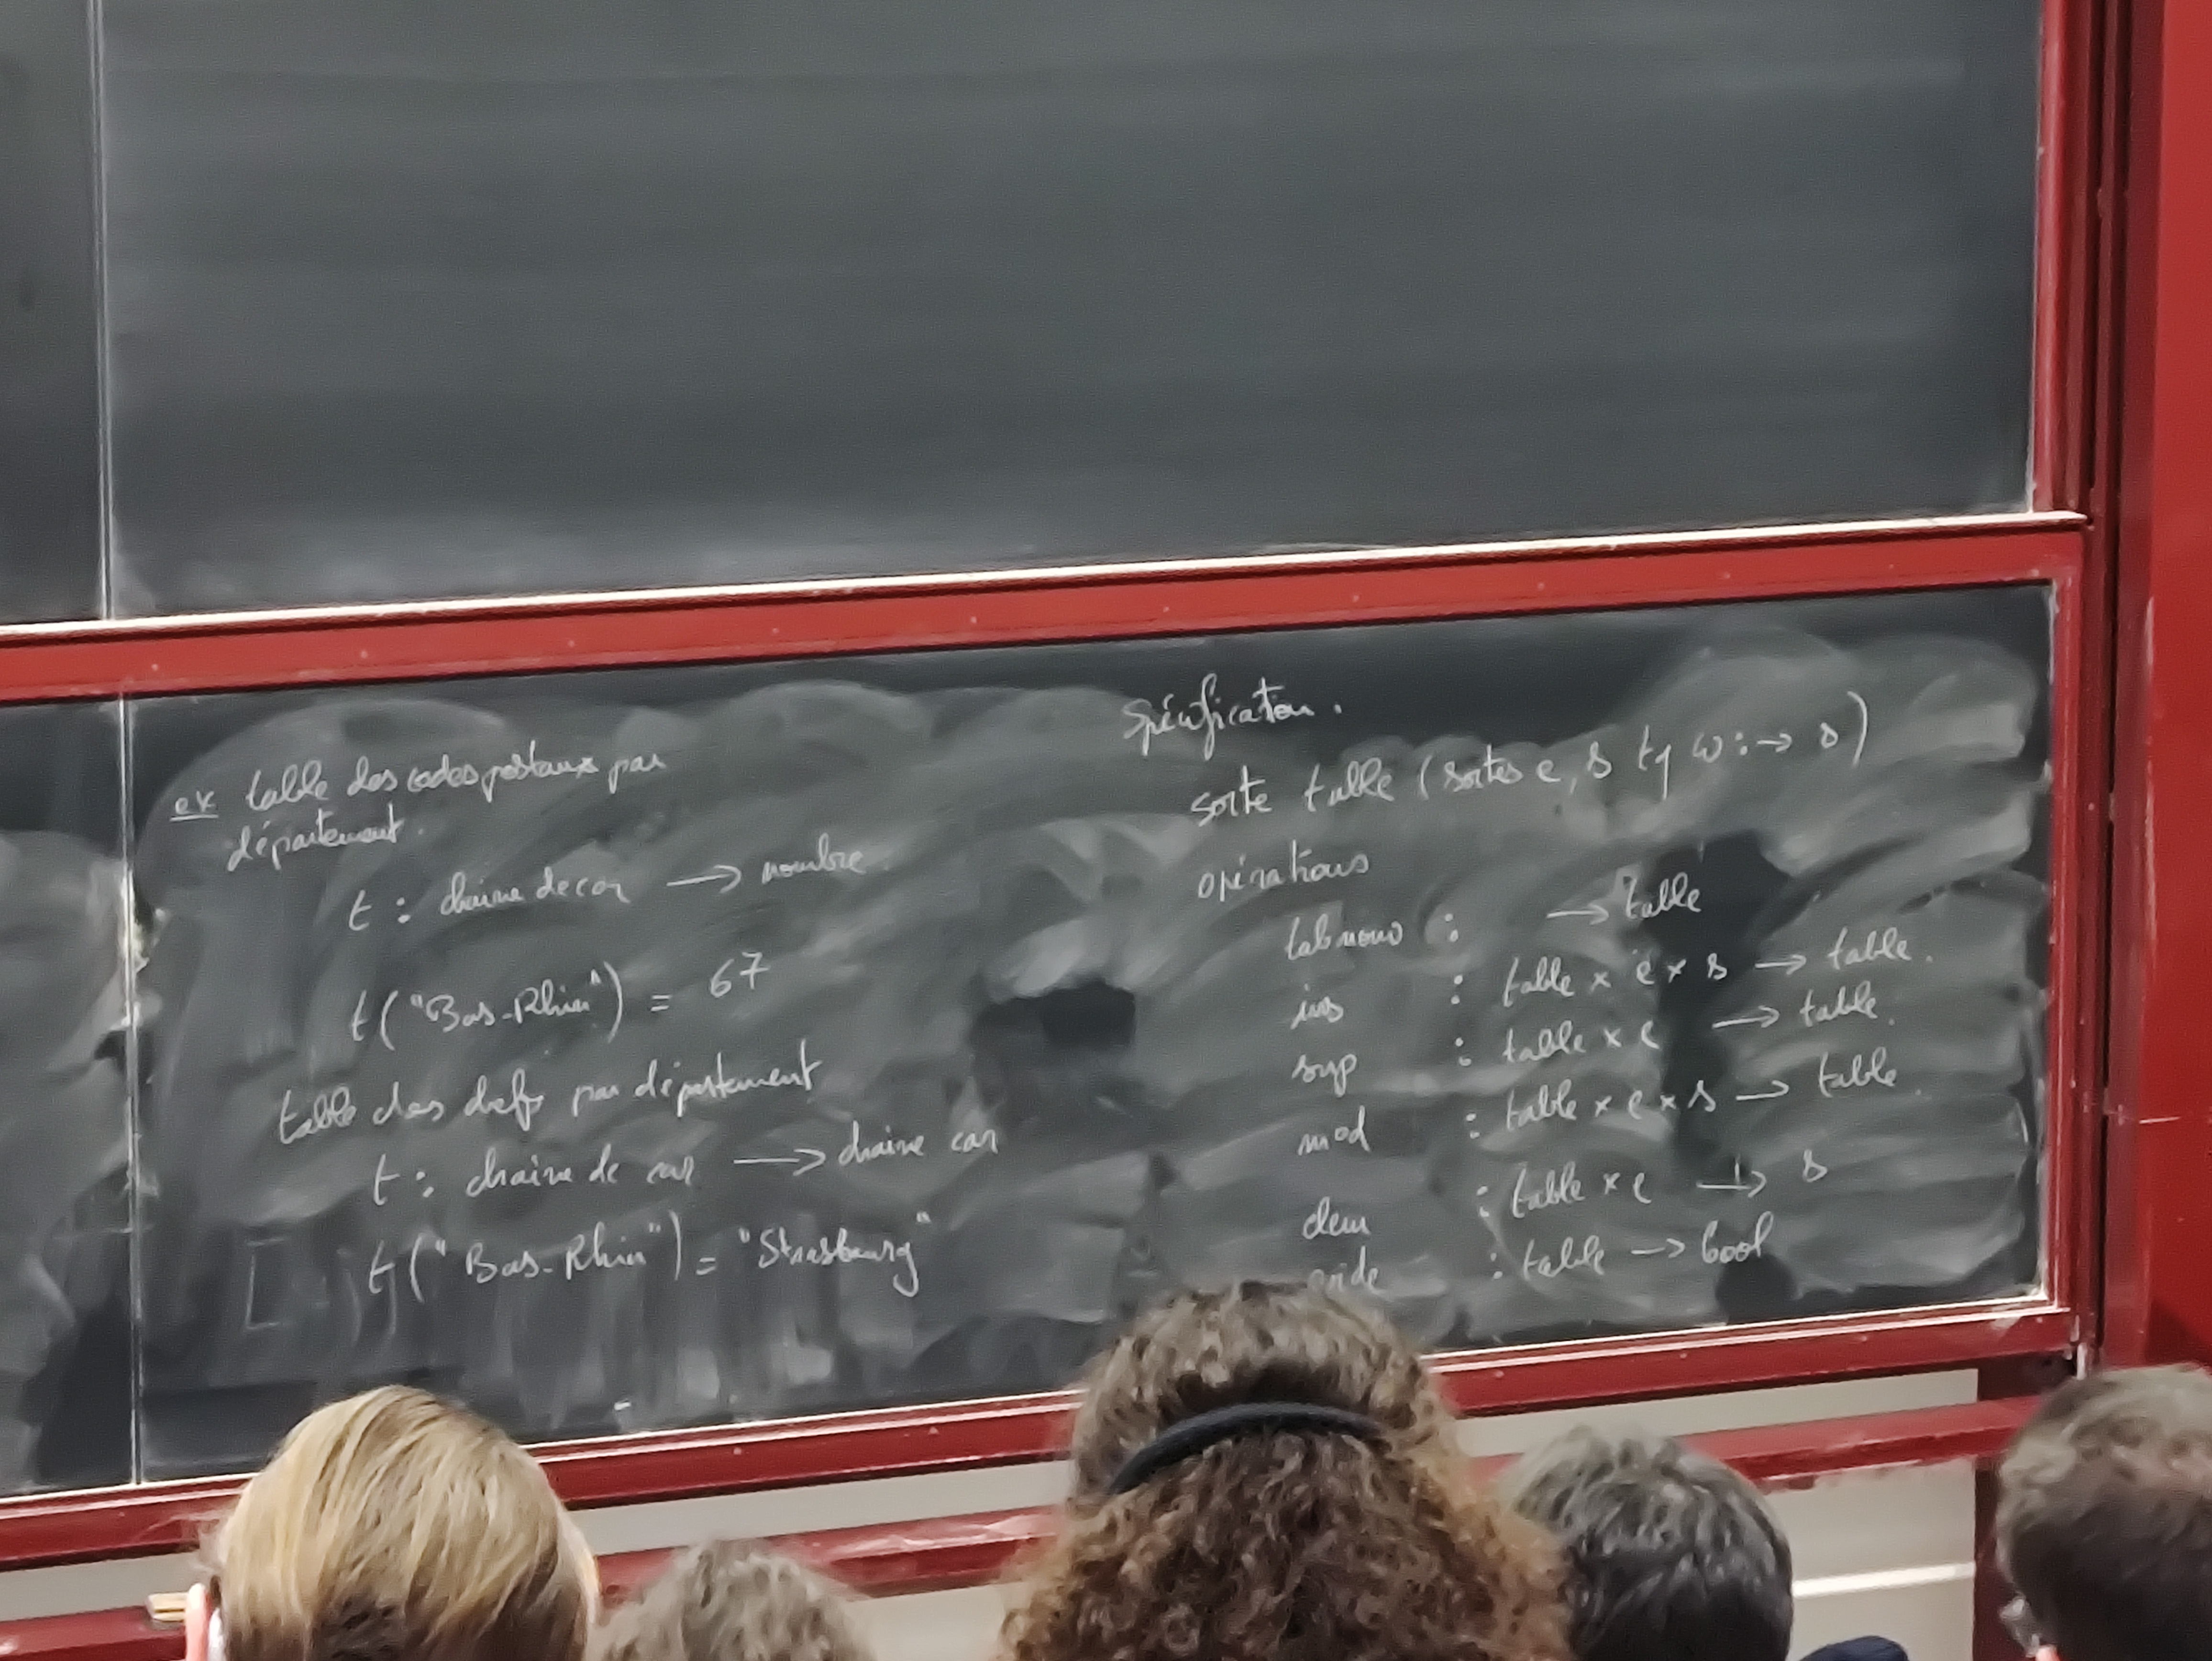 ex table des codes postaux par
département.
t : chaine de car → nombre
t("Bas-Rhin") = 67
table des chefs par département
t : chaine de car → chaine car
t("Bas-Rhin") = "Strasbourg"
Spécification.
sorte table (sortes e, s tq ω : → s)
opérations
tabnouv : → table
ins : table × e × s → table.
sup : table × e → table.
mod : table × e × s → table
: table × e ⇸ s
: table → bool